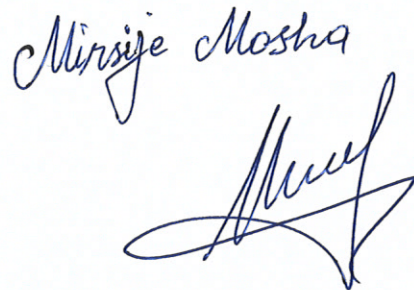 Mirsije Mosha